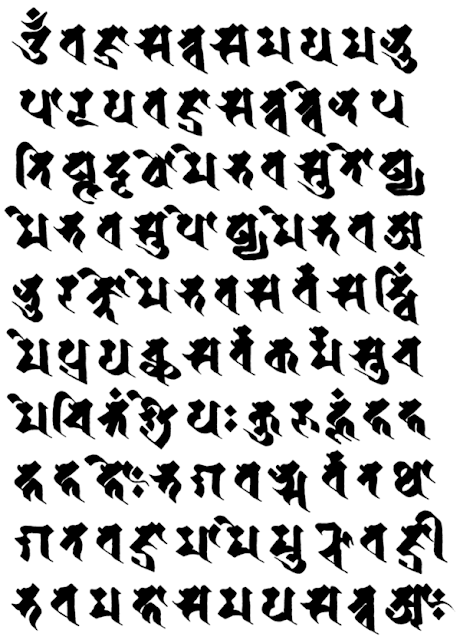 𑖌𑖼𑖪𑖕𑖿𑖨𑖭𑖝𑖿𑖪𑖭𑖦𑖧𑖦𑖡𑖲
𑖢𑖯𑖩𑖧𑖪𑖕𑖿𑖨𑖭𑖝𑖿𑖪𑖝𑖿𑖪𑖸𑖡𑖺𑖢
𑖝𑖰𑖬𑖿𑖙𑖟𑖴𑖛𑖺𑖦𑖸𑖥𑖪𑖭𑖲𑖝𑖺𑖬𑖿𑖧𑖺
𑖦𑖸𑖥𑖪𑖭𑖲𑖢𑖺𑖬𑖿𑖧𑖺𑖦𑖸𑖥𑖪𑖀
𑖡𑖲𑖨𑖎𑖿𑖝𑖺𑖦𑖸𑖥𑖪𑖭𑖨𑖿𑖪𑖭𑖰𑖟𑖿𑖠𑖰𑖽
𑖦𑖸𑖢𑖿𑖨𑖧𑖓𑖿𑖔𑖭𑖨𑖿𑖪𑖎𑖨𑖿𑖦𑖭𑖲𑖓
𑖦𑖸𑖓𑖰𑖝𑖿𑖝𑖽𑖫𑖿𑖨𑖸𑖧𑖾𑖎𑖲𑖨𑖲𑖮𑖳𑖽𑖮𑖮
𑖮𑖮𑖮𑖺𑖾𑖥𑖐𑖪𑖡𑖿𑖭𑖨𑖿𑖪𑖝𑖞𑖯
𑖐𑖝𑖪𑖕𑖿𑖨𑖦𑖯𑖦𑖸𑖦𑖲𑖗𑖿𑖓𑖪𑖕𑖿𑖨𑖱
𑖥𑖪𑖦𑖮𑖯𑖭𑖦𑖧𑖭𑖝𑖿𑖪𑖁𑖾